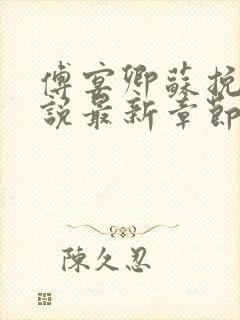 傅宴卿蘇挽
說最新章節
陳久忍